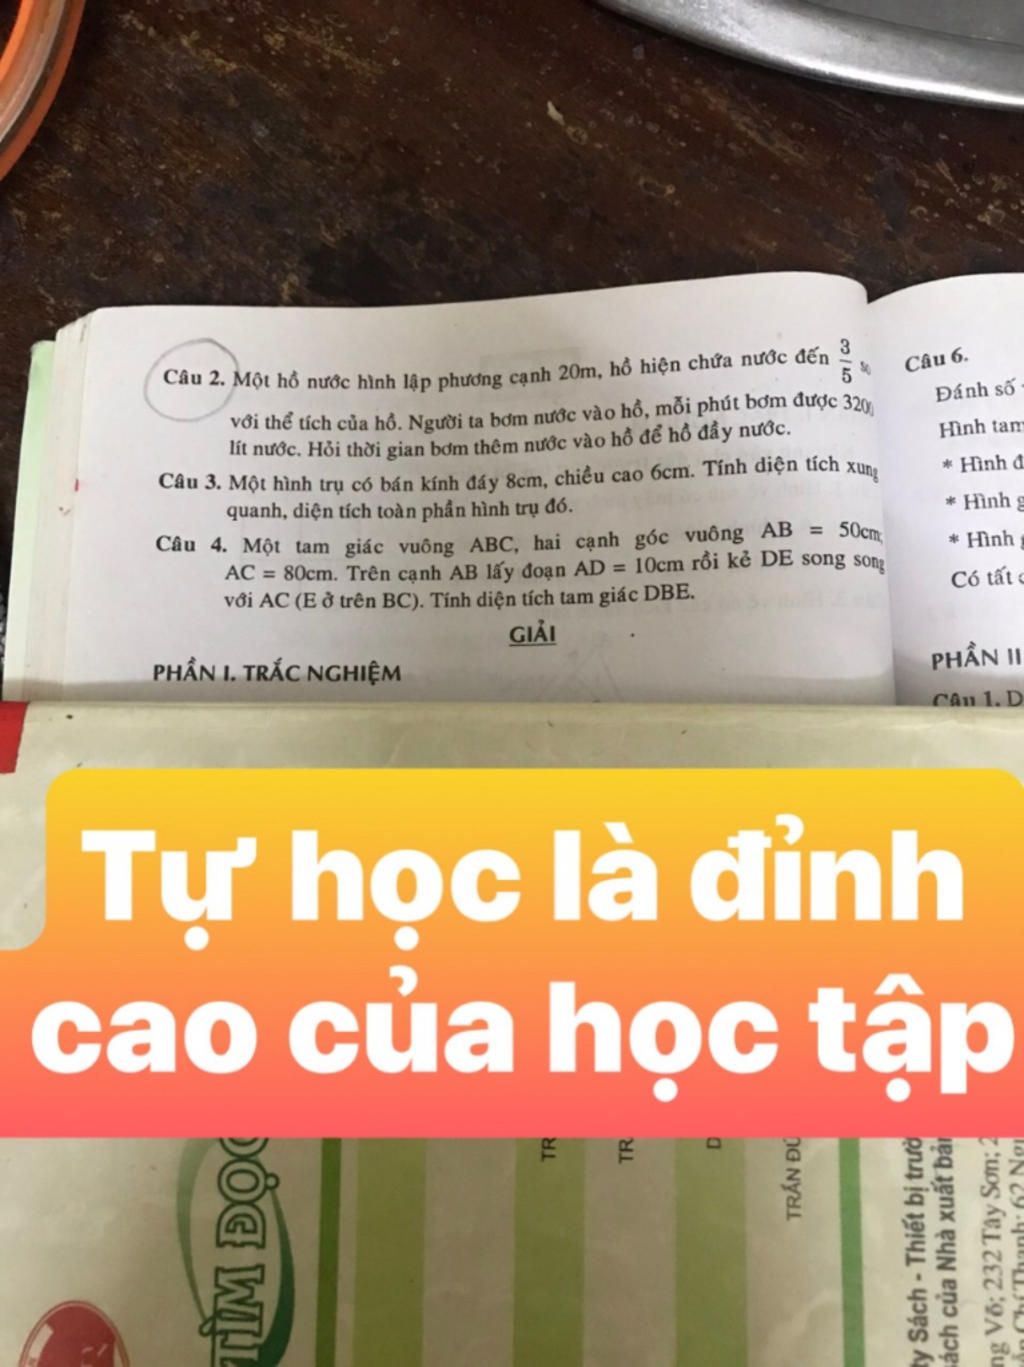 Câu 2. Một hồ nước hình lập phương cạnh 20m, hồ hiện chứa nước đến 3/5 so
với thể tích của hồ. Người ta bơm nước vào hồ, mỗi phút bơm được 3200
lít nước. Hỏi thời gian bơm thêm nước vào hồ để hồ đầy nước.
Câu 3. Một hình trụ có bán kính đáy 8cm, chiều cao 6cm. Tính diện tích xung
quanh, diện tích toàn phần hình trụ đó.
Câu 4. Một tam giác vuông ABC, hai cạnh góc vuông AB = 50cm;
AC = 80cm. Trên cạnh AB lấy đoạn AD = 10cm rồi kẻ DE song song
với AC (E ở trên BC). Tính diện tích tam giác DBE.
GIẢI
PHẦN I. TRẮC NGHIỆM
Câu 6.
Đánh số
Hình tam
* Hình
* Hình
* Hình
Có tất
PHẦN II
Câu 1. D
Tự học là đỉnh
cao của học tập
TÌM ĐỌC
TR
TR
D
TRẦN ĐỨ
ty Sách - Thiết bị trườ
ách của Nhà xuất bản
ng Võ; 232 Tây Sơn; 2
Chí Thanh; 62 Ngu